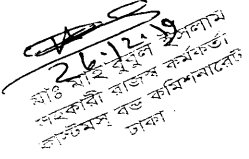 26.12.19
মোঃ মাহবুবুল ইসলাম
সহকারী রাজস্ব কর্মকর্তা
কাস্টমস্ বন্ড কমিশনারেট
ঢাকা